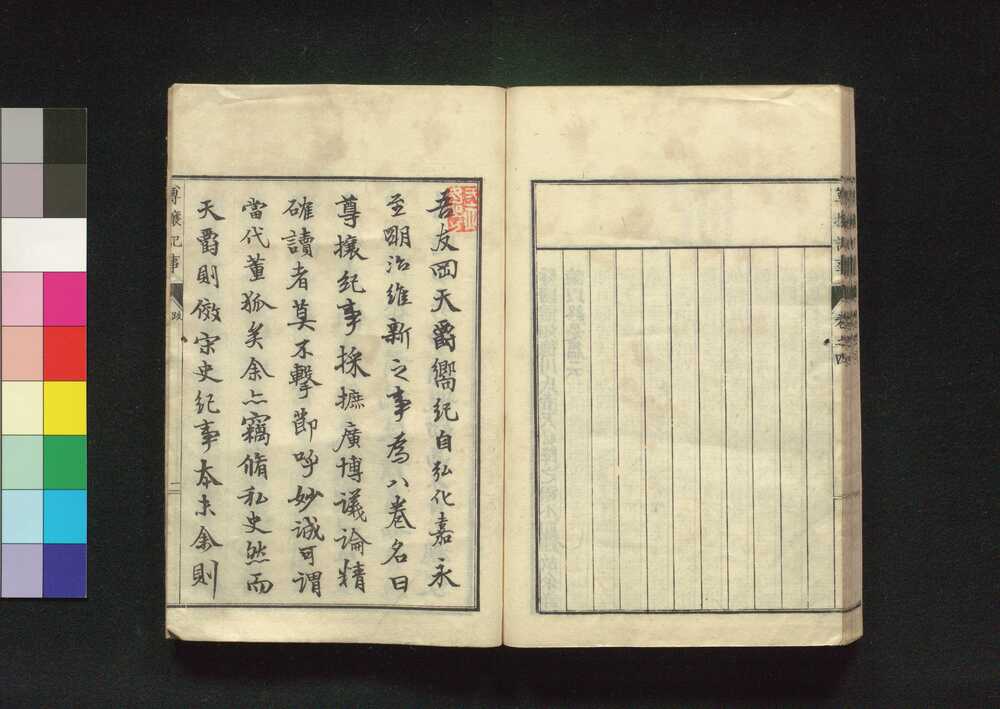 尊攘紀事 卷之四
吾友岡天爵嚮紀自弘化嘉永
至明治維新之事為八卷名曰
尊攘紀事採摭廣博議論精
確讀者莫不擊節呼妙誠可謂
當代董狐矣余亦竊脩私史然而
天爵則倣宋史紀事本末余則
尊攘紀事
跋